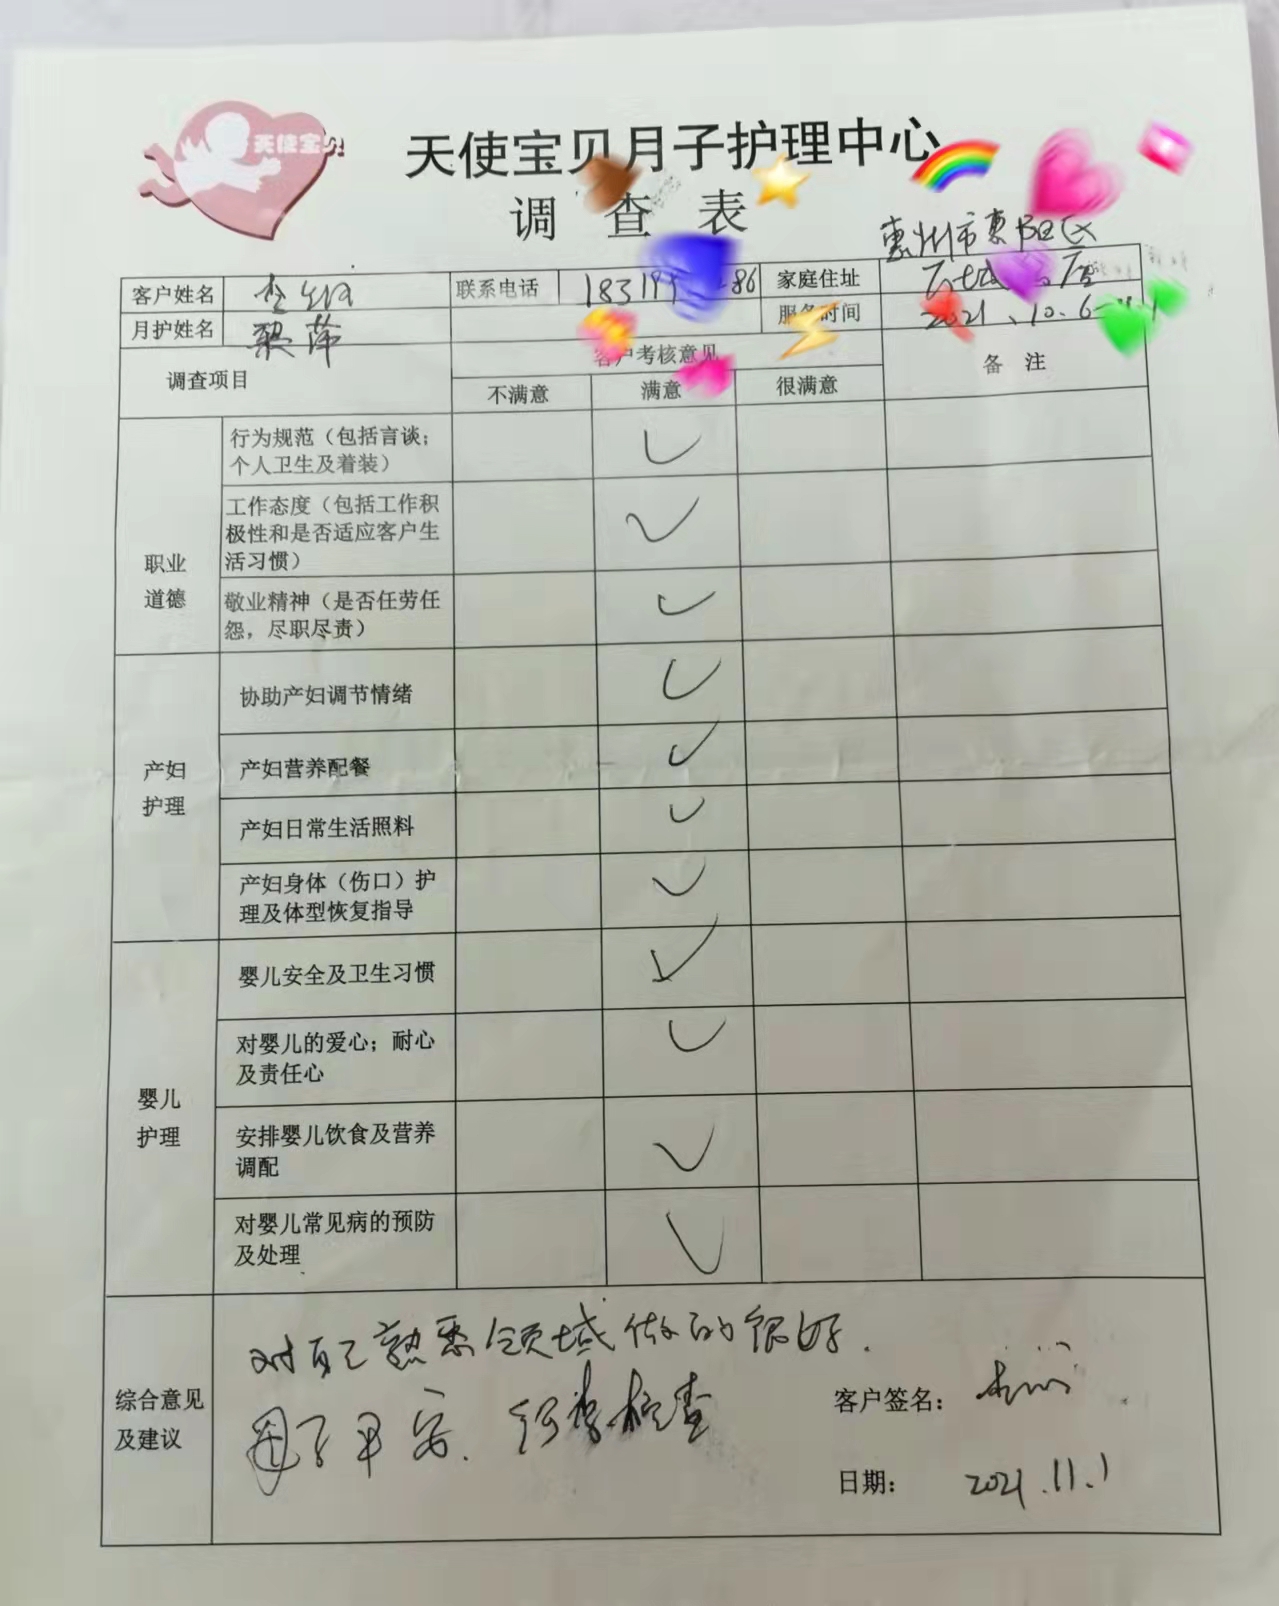 天使宝贝
天使宝贝月子护理中心
调查表
惠州市惠阳区
客户姓名
联系电话
家庭住址
月护姓名 黎萍
服务时间 2021.10.6
调查项目
客户考核意见
备注
不满意 满意 很满意
职业
道德
行为规范（包括言谈；
个人卫生及着装）
工作态度（包括工作积
极性和是否适应客户生
活习惯）
敬业精神（是否任劳任
怨，尽职尽责）
产妇
护理
协助产妇调节情绪
产妇营养配餐
产妇日常生活照料
产妇身体（伤口）护
理及体型恢复指导
婴儿
护理
婴儿安全及卫生习惯
对婴儿的爱心；耐心
及责任心
安排婴儿饮食及营养
调配
对婴儿常见病的预防
及处理
综合意见
及建议
对自己熟悉领域做的很好.
行李检查
客户签名：
日期： 2021.11.1